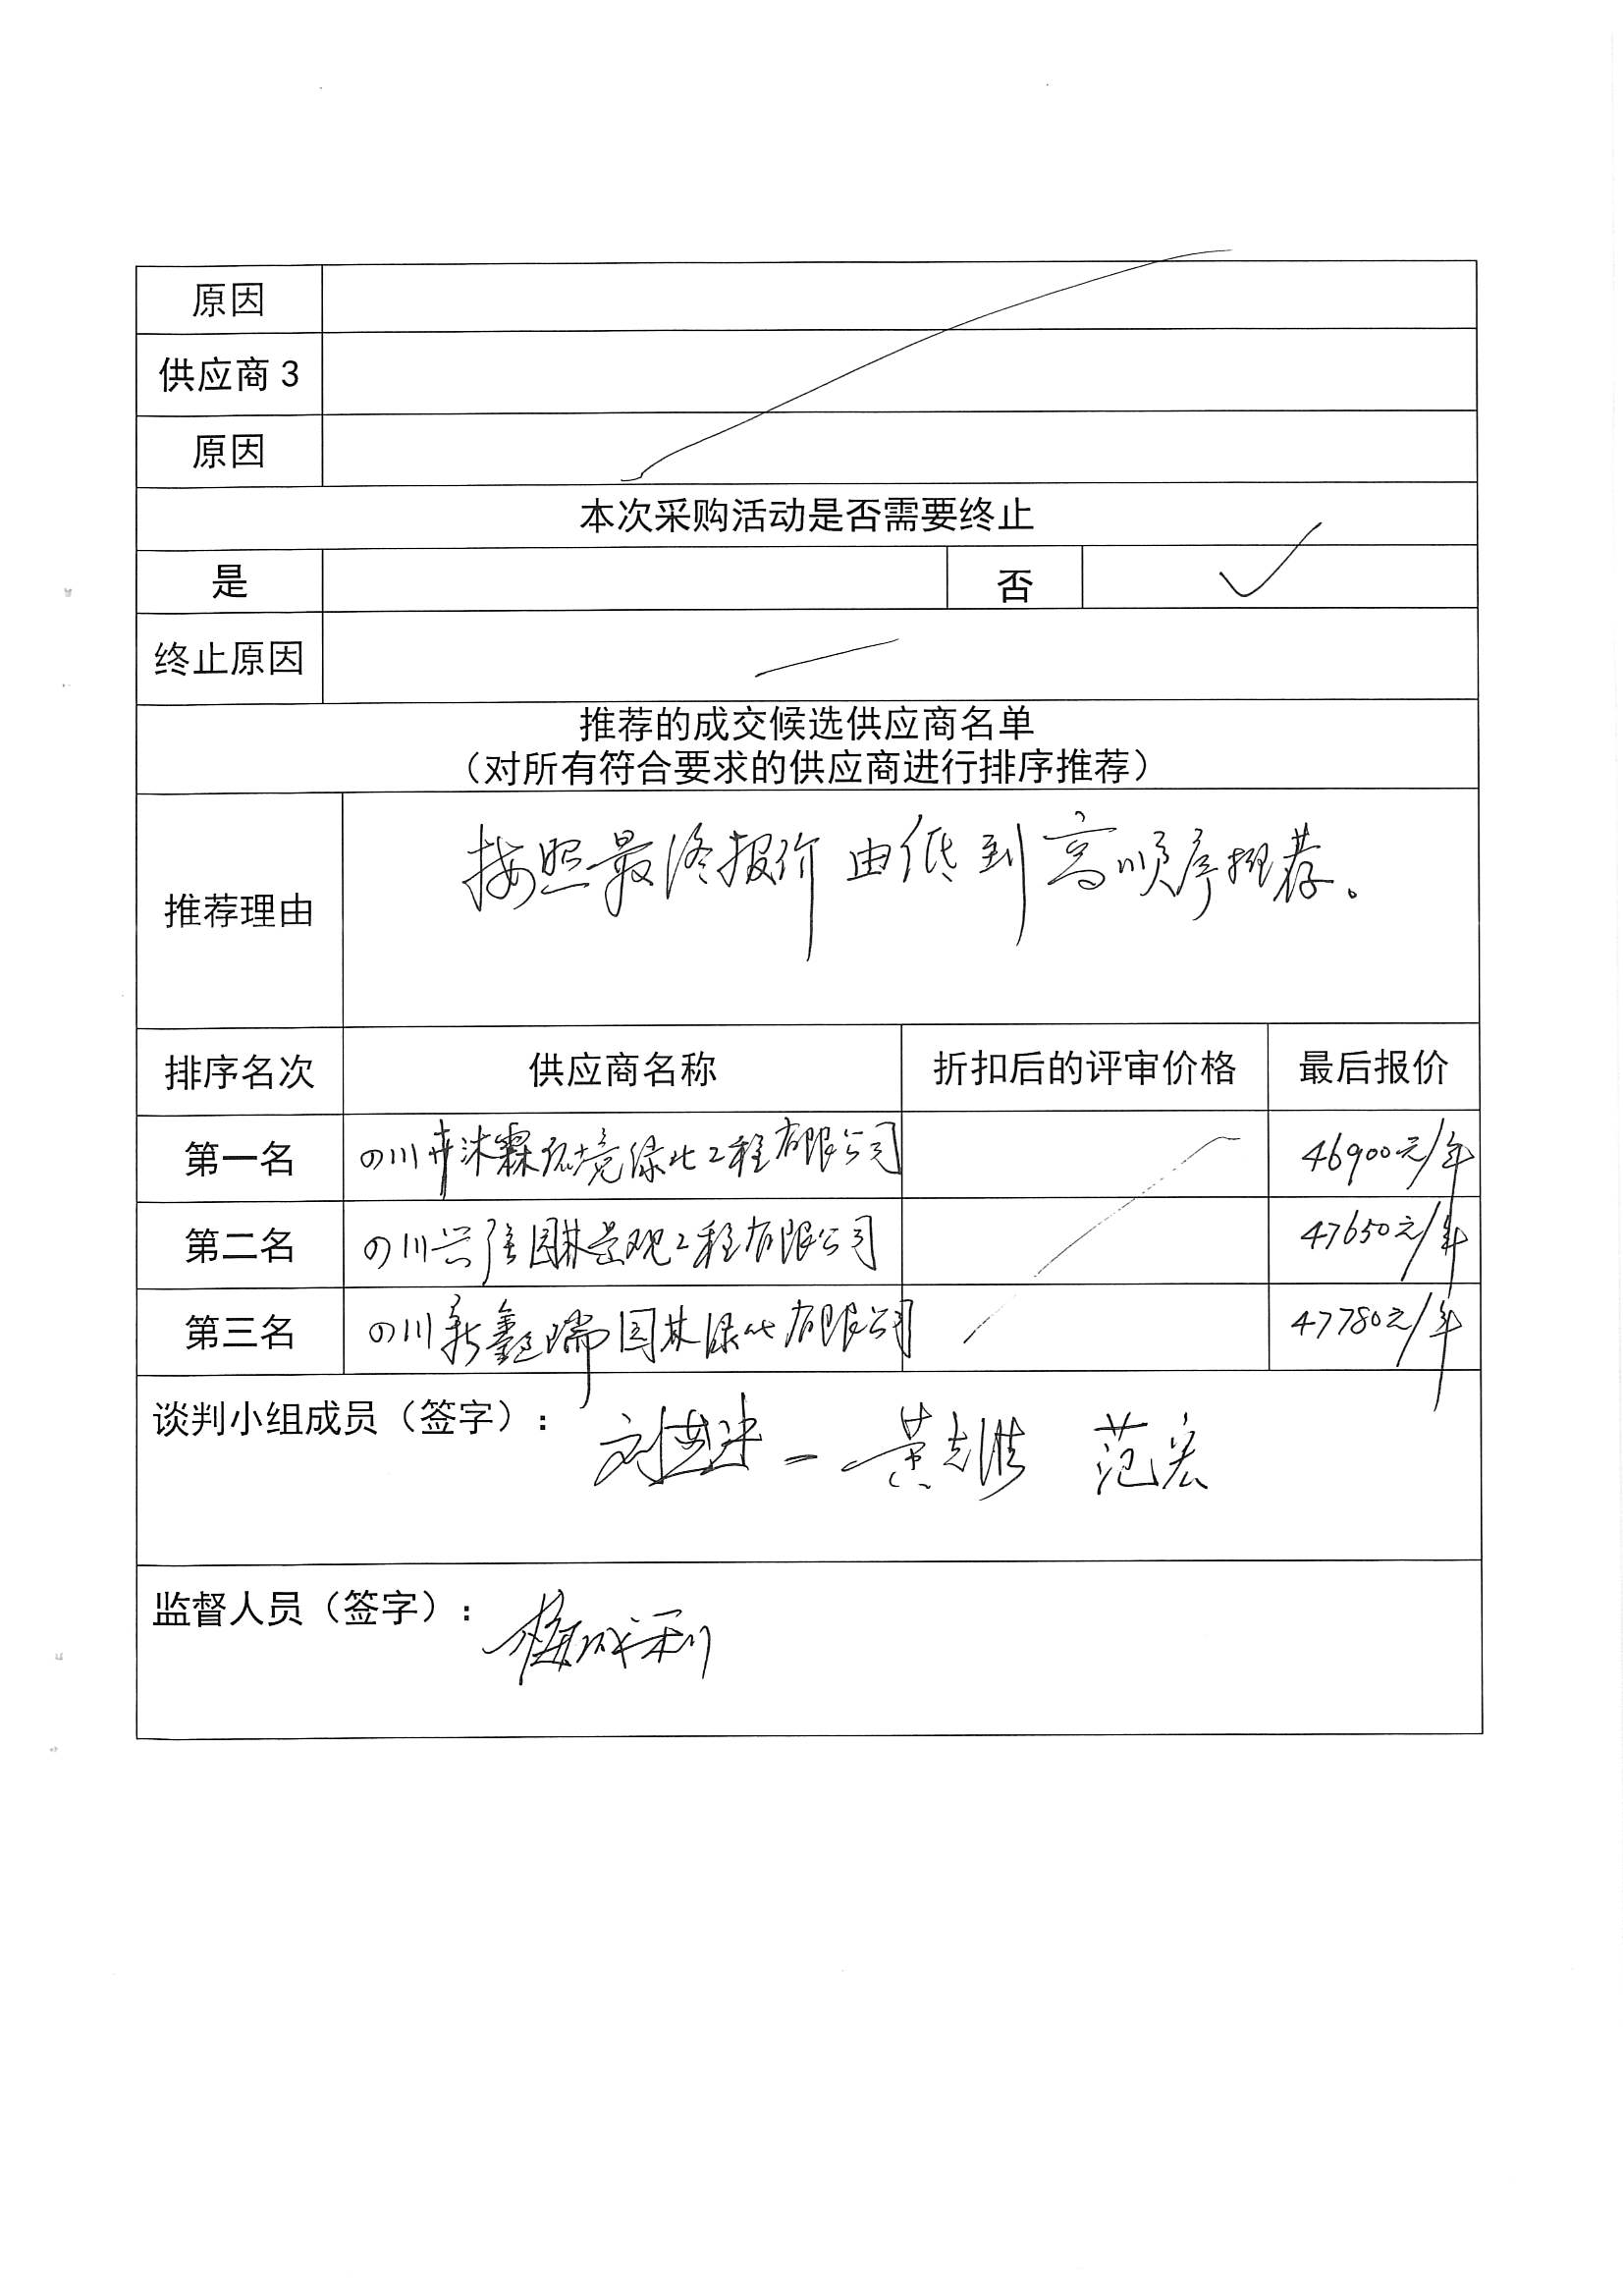 原因
供应商 3
原因
本次采购活动是否需要终止
是 否 ✓
终止原因
推荐的成交候选供应商名单
（对所有符合要求的供应商进行排序推荐）
推荐理由 按照最终报价由低到高顺序推荐。
排序名次 供应商名称 折扣后的评审价格 最后报价
第一名 四川卉沐霖环境绿化工程有限公司 46900元/年
第二名 四川兴隆园林景观工程有限公司 47650元/年
第三名 四川新鑫瑞园林绿化有限公司 47780元/年
谈判小组成员（签字）： 范宏
监督人员（签字）：